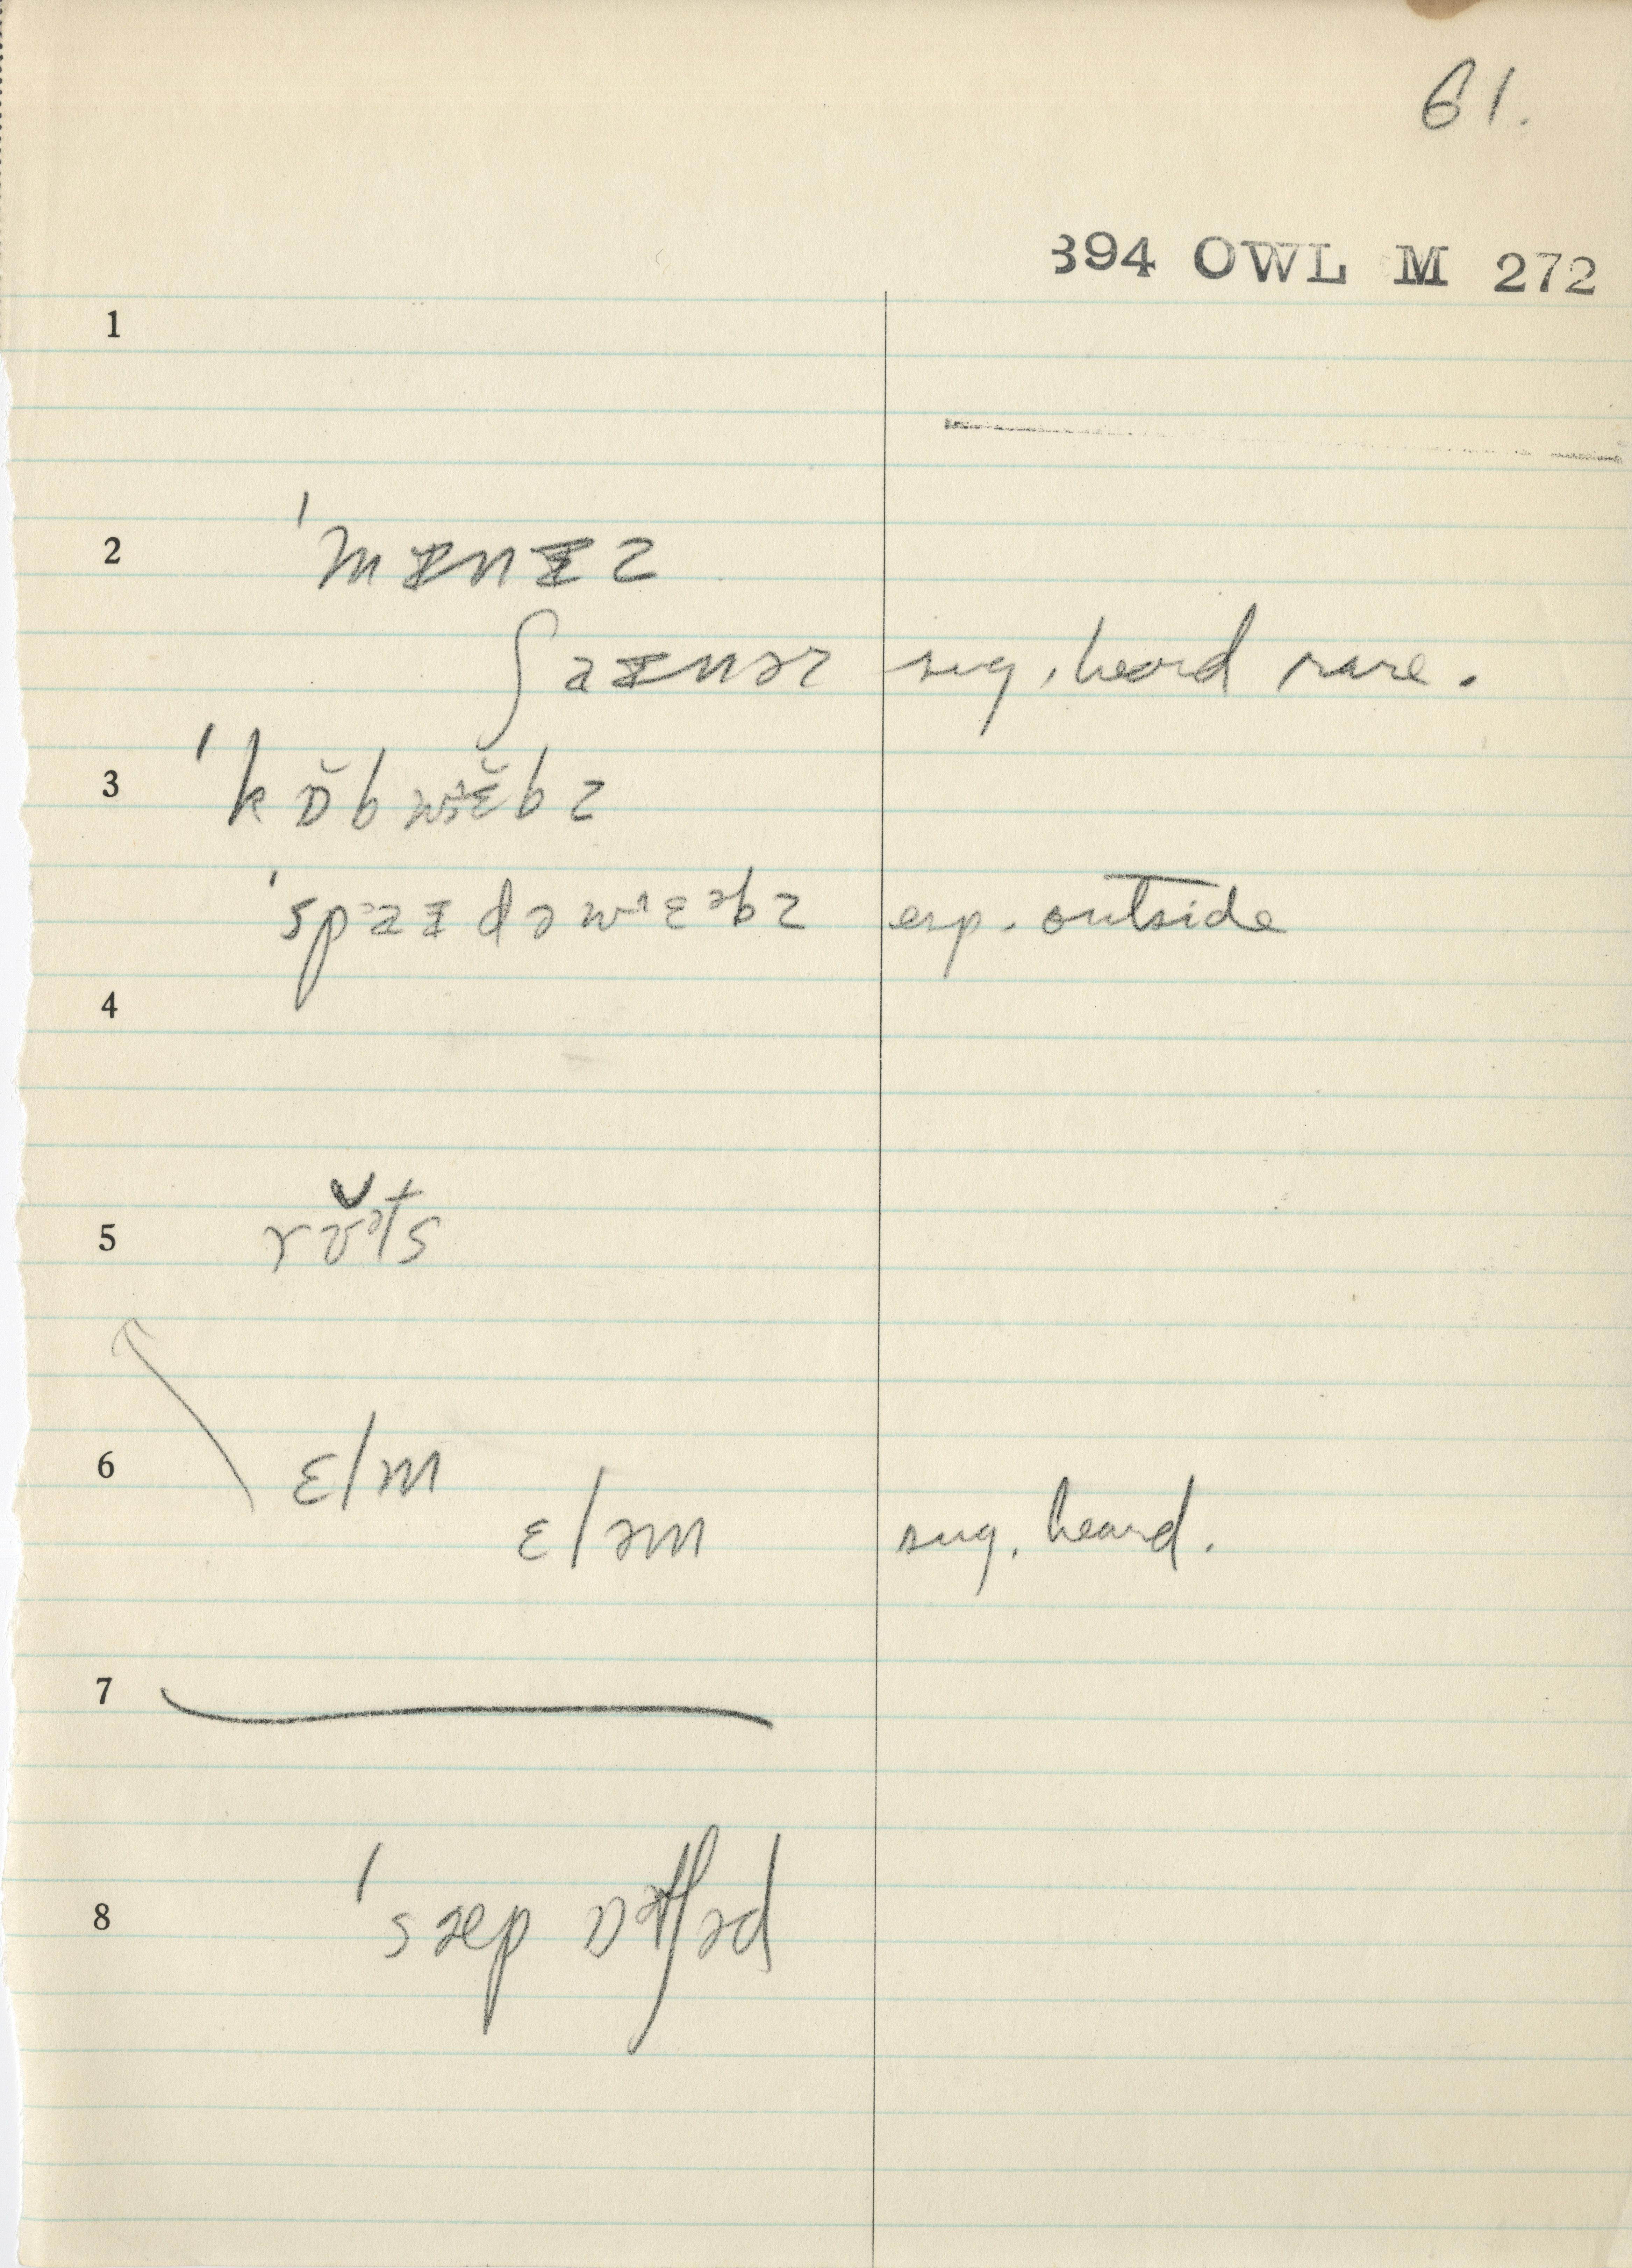 61.
394 OWL M 272
1
2 ˈmɪnɪz
ʃaɪnəz sug. heard rare.
3 ˈkɒ̆bwɛ̆bz
ˈspaɪdəwɛəbz esp. outside
4
5 rʊ̆ᵊts
6 ɛlm
ɛləm sug. heard.
7
8